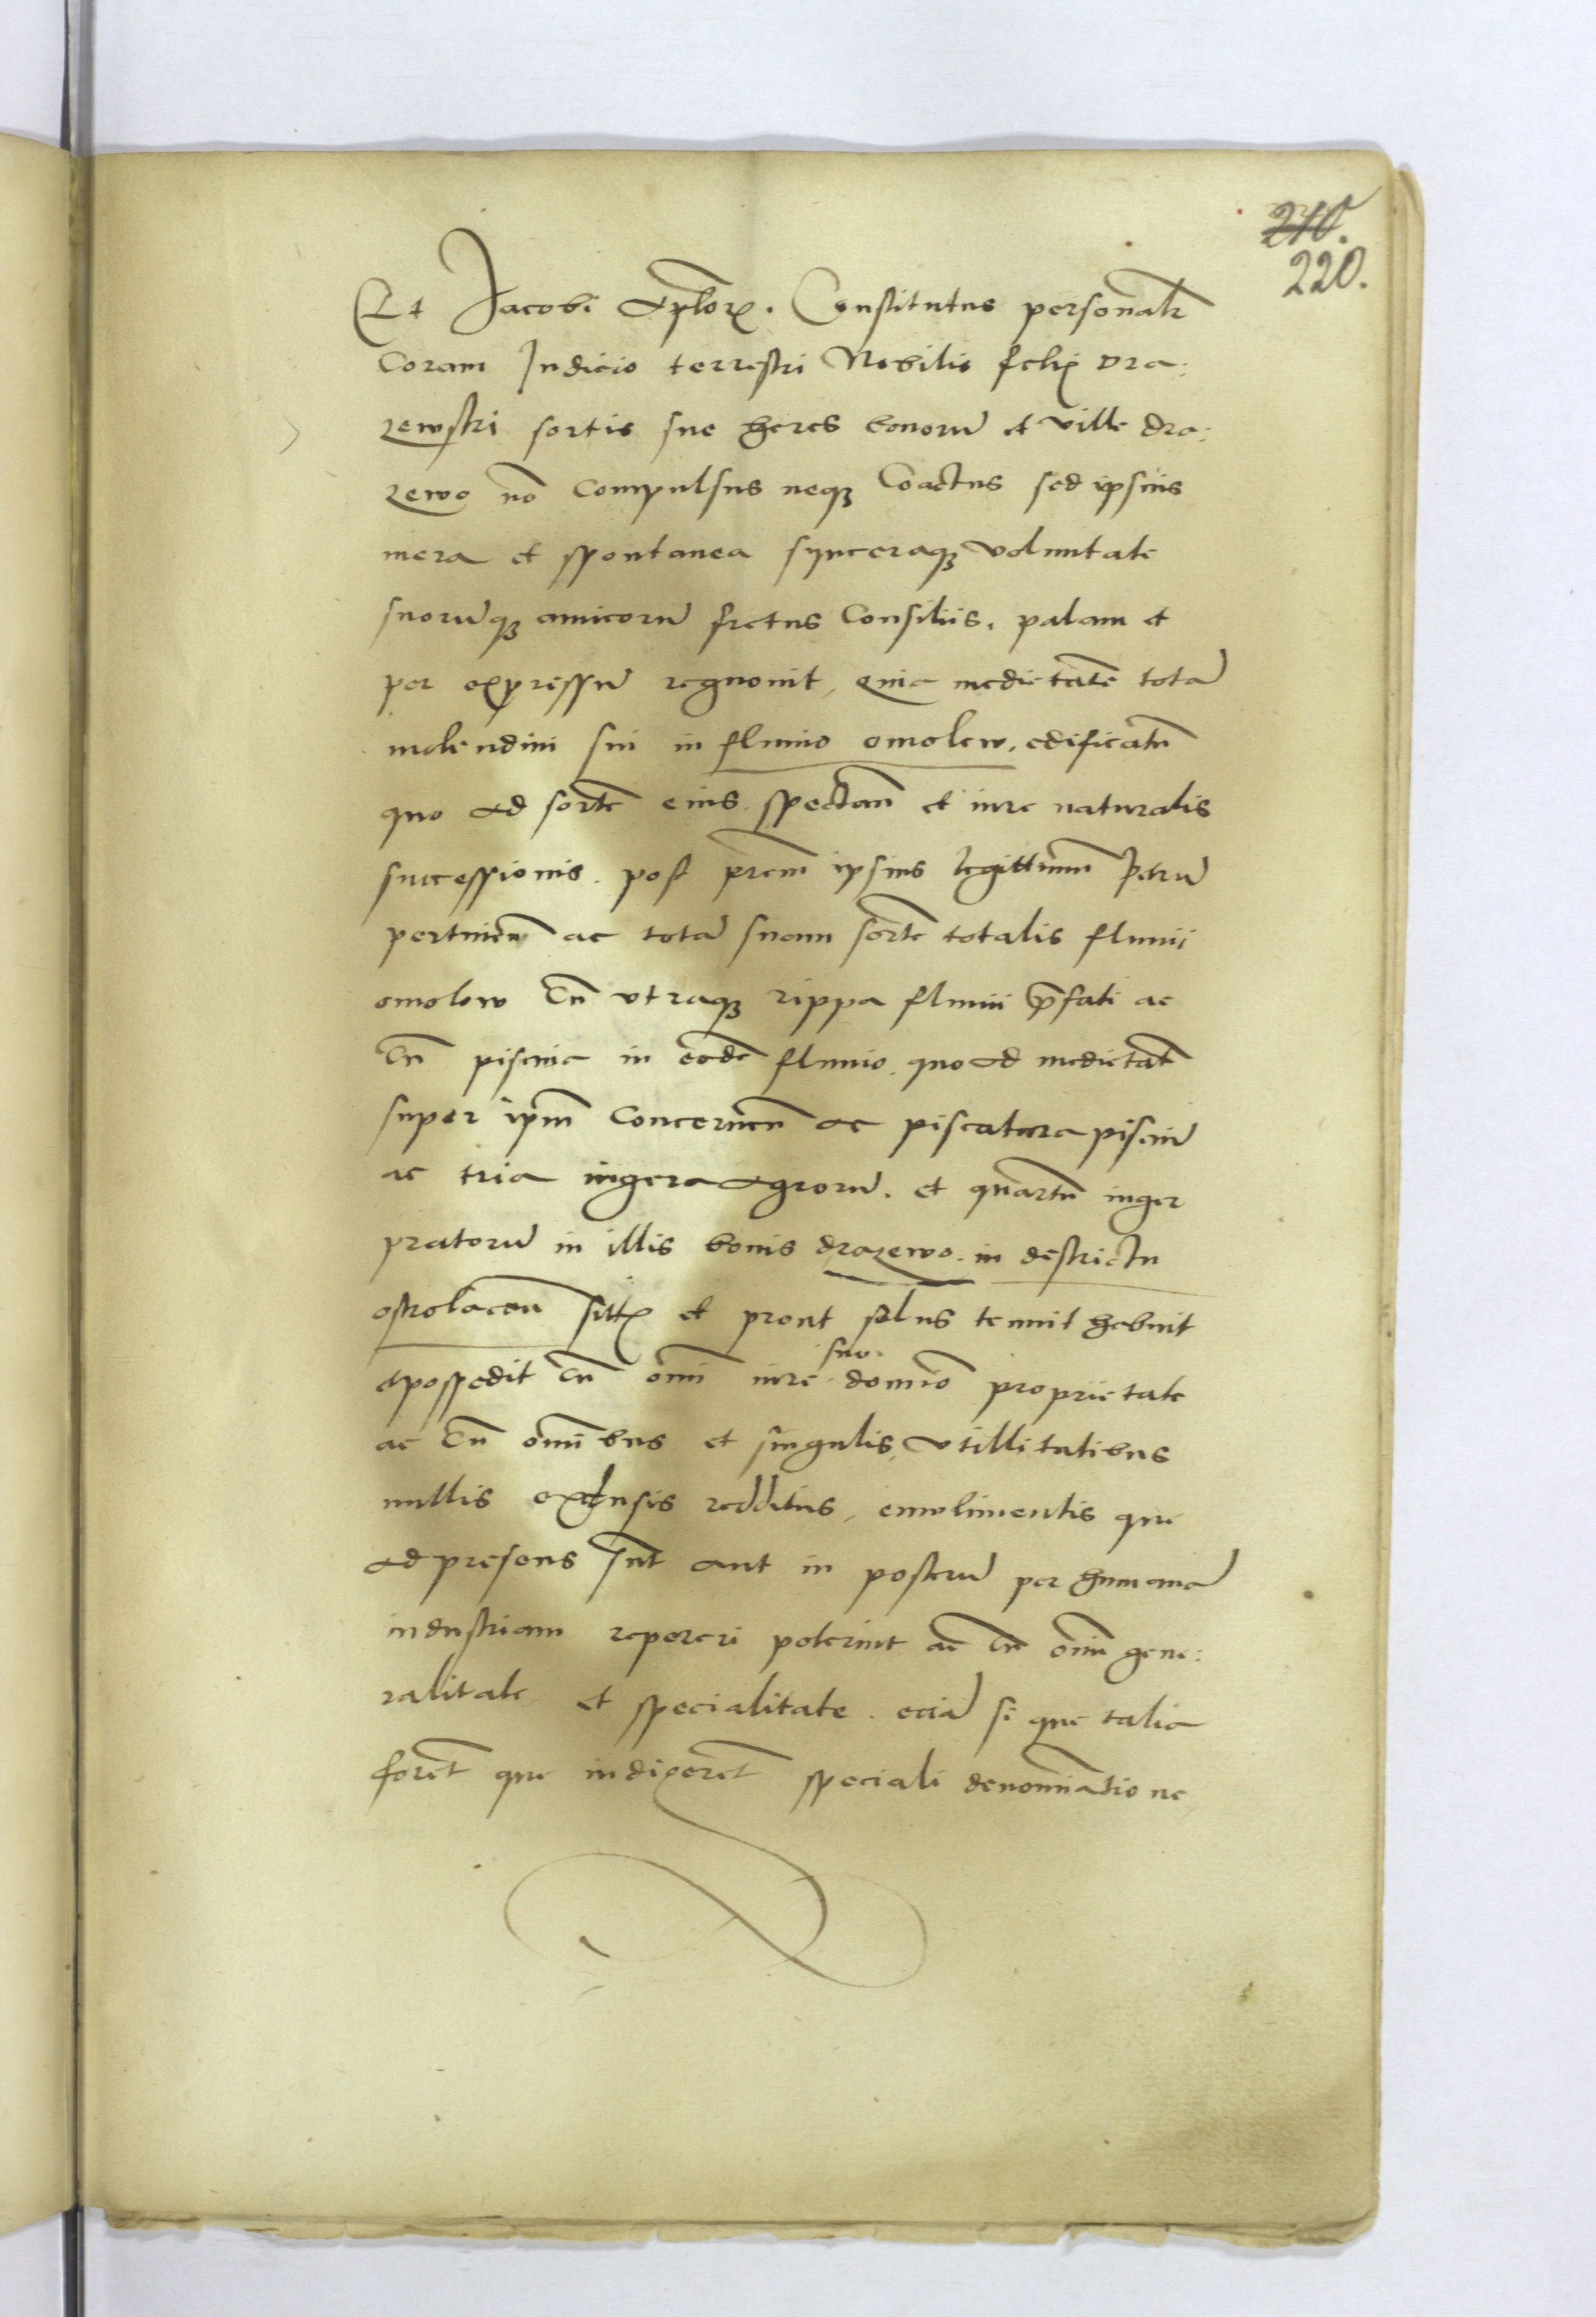 210.
220.
Et Jacobi Aplorꝫ. Constitutus personalr
Coram Judicio terrestri Nobilis felix Dra:
zewski sortis sue heres bonorū et ville dra:
zewo nō compulsus neqꝫ Coactus sed ipsius
mera et spontanea synceraqꝫ voluntate
suorūqꝫ amicorū fretus Consiliis. palam et
per expressū regnouit, quia medietatē totā
molendini sui in fluuio omolew, edificatū
quo ad sortē eius spectan̄ et iure naturalis
successionis. post prēm ipsius legittimum Petrū
pertinen̄ ac totā suam sortē totalis fluuii
omolew cū utraqꝫ rippa fluuii p̄fati ac
cū piscina in eodē fluuio. quo ad medietatē
super ipm̄ Concernen̄ ac piscatura pisciū
ac tria iugera agrorū. et quartū iuger
pratorū in illis bonis drazewo. in destrictu
ostrolacen̄ sittꝫ et prout solus tenuit habuit
et possedit cū omī iure suo. domīo proprietate
ac cū omībus et singulis, utillitatibus
nullis exclusis redditus, emolimentis que
ad presens sūt aut in posterū per humanā
industriam repereri poterint ac cū omī gene:
ralitate et specialitate. eciā si que talia
forēt que indigerēt speciali denomīatione